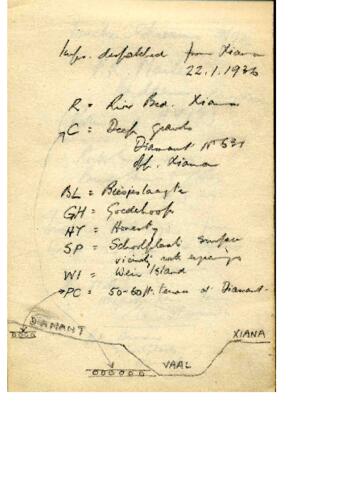 Imps. despatched from Xiana
22.1.1936
R = River Bed. Xiana
C = Deep gravels
Diamant No 531
Opp. Xiana
BL = Biesjeslaagte
GH = Goedehoop
HY = Honesty
SP = Schoolplaats surface
vicinity rock engravings
WI = Weir Island
PC = 50-60 ft. terrace at Diamant
DIAMANT
XIANA
VAAL